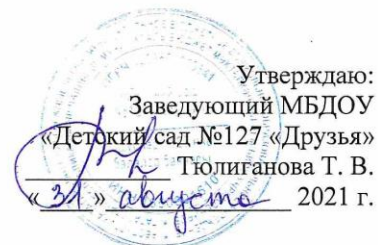 Утверждаю:
Заведующий МБДОУ
«Детский сад №127 «Друзья»
Тюлиганова Т. В.
«31» августа 2021 г.